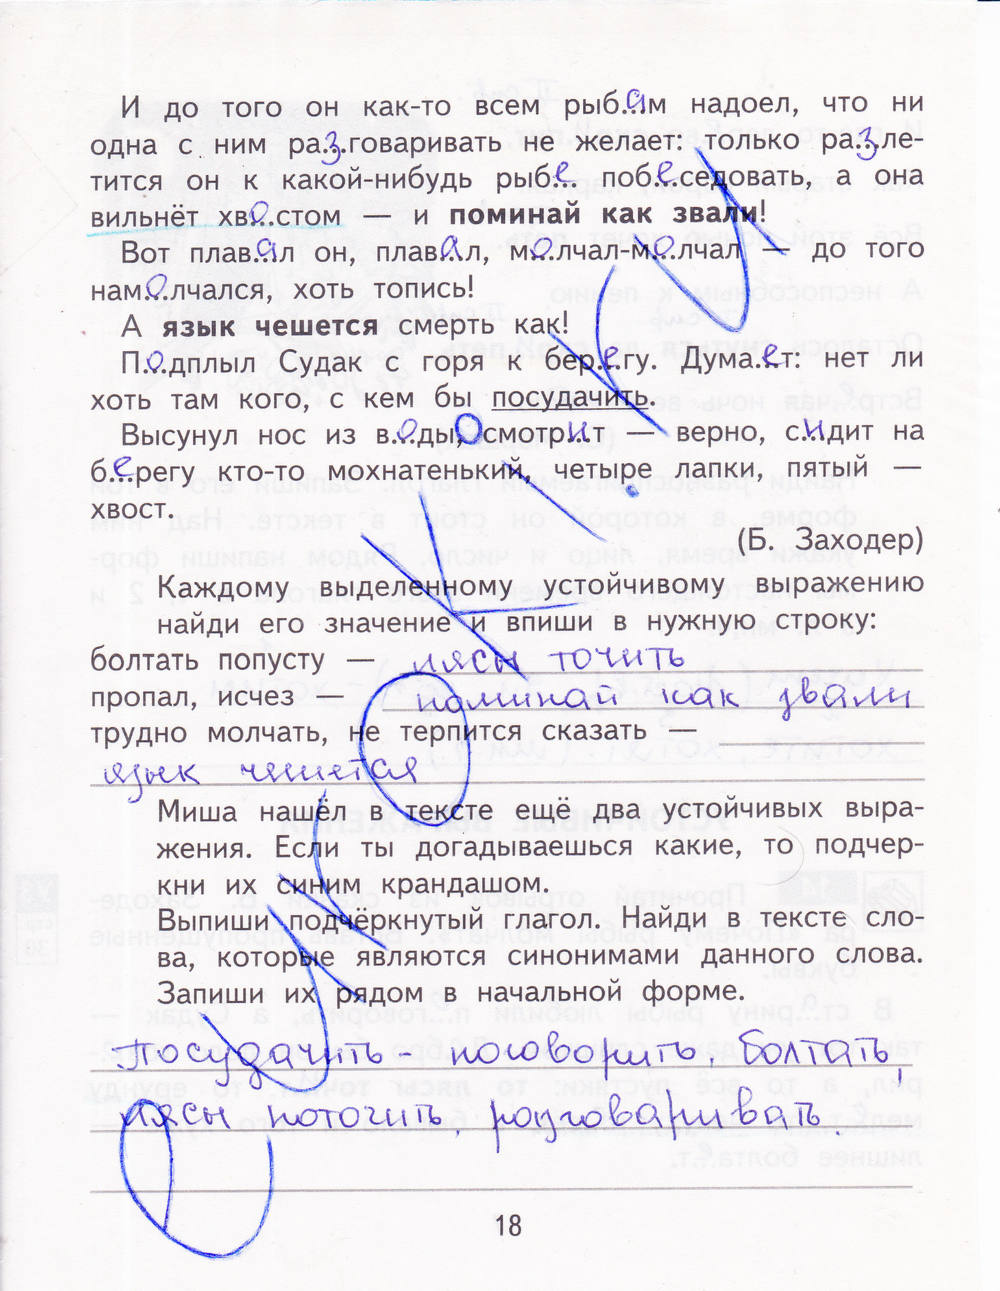 И до того он как-то всем рыб.а.м надоел, что ни
одна с ним ра.з.говаривать не желает: только ра.з.ле-
тится он к какой-нибудь рыб.е. поб.е.седовать, а она
вильнёт хв.о.стом — и поминай как звали!
Вот плав.а.л он, плав.а.л, м.о.лчал-м.о.лчал — до того
нам.о.лчался, хоть топись!
А язык чешется смерть как!
П.о.дплыл Судак с горя к бер.е.гу. Дума.е.т: нет ли
хоть там кого, с кем бы посудачить.
Высунул нос из в.о.ды, смотр.и.т — верно, с.и.дит на
б.е.регу кто-то мохнатенький, четыре лапки, пятый —
хвост.
(Б. Заходер)
Каждому выделенному устойчивому выражению
найди его значение и впиши в нужную строку:
болтать попусту — лясы точить
пропал, исчез — поминай как звали
трудно молчать, не терпится сказать —
язык чешется
Миша нашёл в тексте ещё два устойчивых выра-
жения. Если ты догадываешься какие, то подчер-
кни их синим крандашом.
Выпиши подчёркнутый глагол. Найди в тексте сло-
ва, которые являются синонимами данного слова.
Запиши их рядом в начальной форме.
Посудачить - поговорить, болтать,
лясы поточить, разговаривать.
18